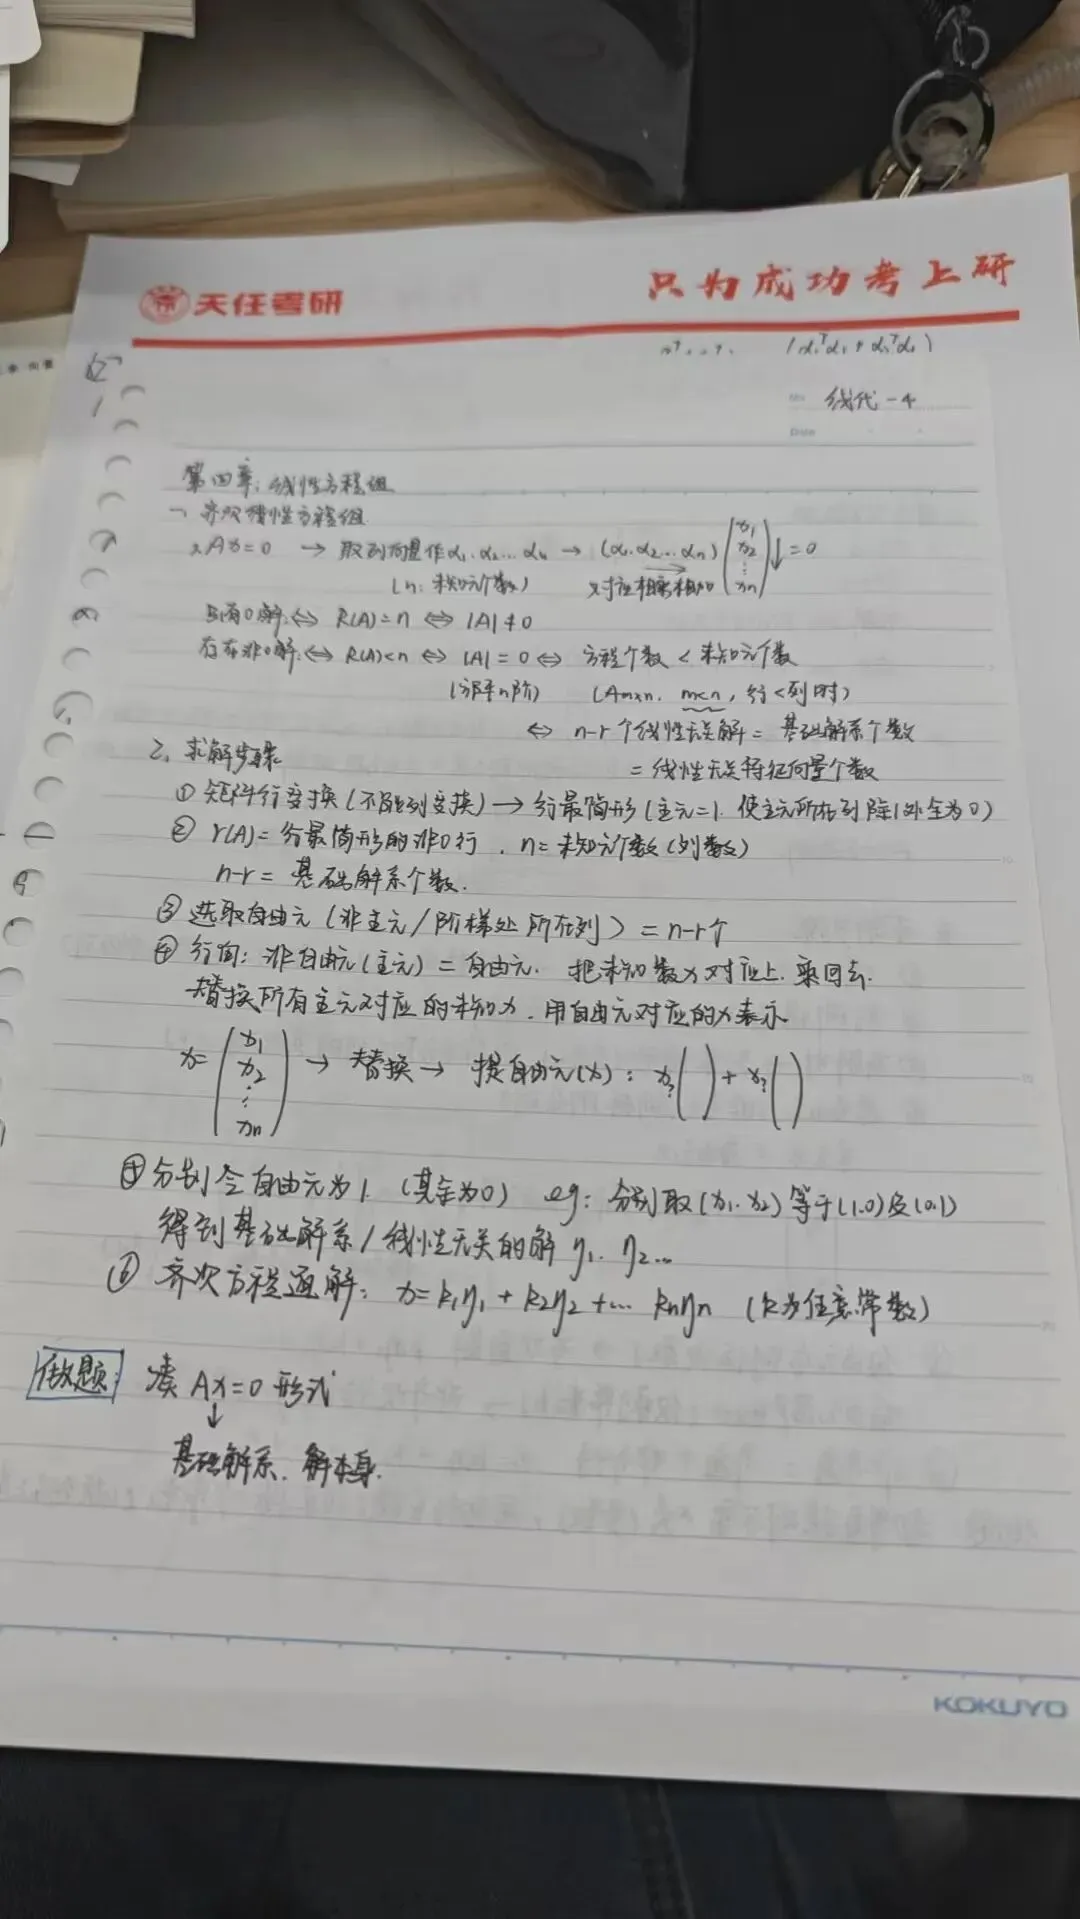 天任考研
只为成功考上研
(α₁ᵀα₁ + α₂ᵀα₂)
No. 线代-4
Date
第四章：线性方程组
一、齐次线性方程组
Ax=0 → 取列向量作α₁.α₂…αₙ → (α₁.α₂…αₙ)(x₁ x₂ ⋮ xₙ)↓=0
(n: 未知元个数) 对应相乘相加
只有0解 ⇔ R(A)=n ⇔ |A|≠0
存在非0解 ⇔ R(A)<n ⇔ |A|=0 ⇔ 方程个数<未知元个数
(方阵n阶) (Am×n. m<n, 行<列时)
⇔ n-r个线性无关解 = 基础解系个数
= 线性无关特征向量个数
二、求解步骤
① 矩阵行变换(不能列变换) → 行最简形(主元=1. 使主元所在列除1外全为0)
② r(A)=行最简形的非0行. n=未知元个数(列数)
n-r= 基础解系个数.
③ 选取自由元(非主元/阶梯处所在列) = n-r个
④ 行间: 非自由元(主元) = 自由元. 把未知数x对应上. 乘回去.
替换所有主元对应的未知x. 用自由元对应的x表示
x=(x₁ x₂ ⋮ xₙ) → 替换 → 提自由元(x): x?( )+x?( )
分别令自由元为1. (其余为0) eg: 分别取(x₁.x₂)等于(1.0)及(0.1)
得到基础解系/线性无关的解 η₁. η₂…
⑥ 齐次方程通解: x=k₁η₁+k₂η₂+… kₙηₙ (k为任意常数)
做题: 凑 Ax=0 形式
↓
基础解系. 解本身.
KOKUYO